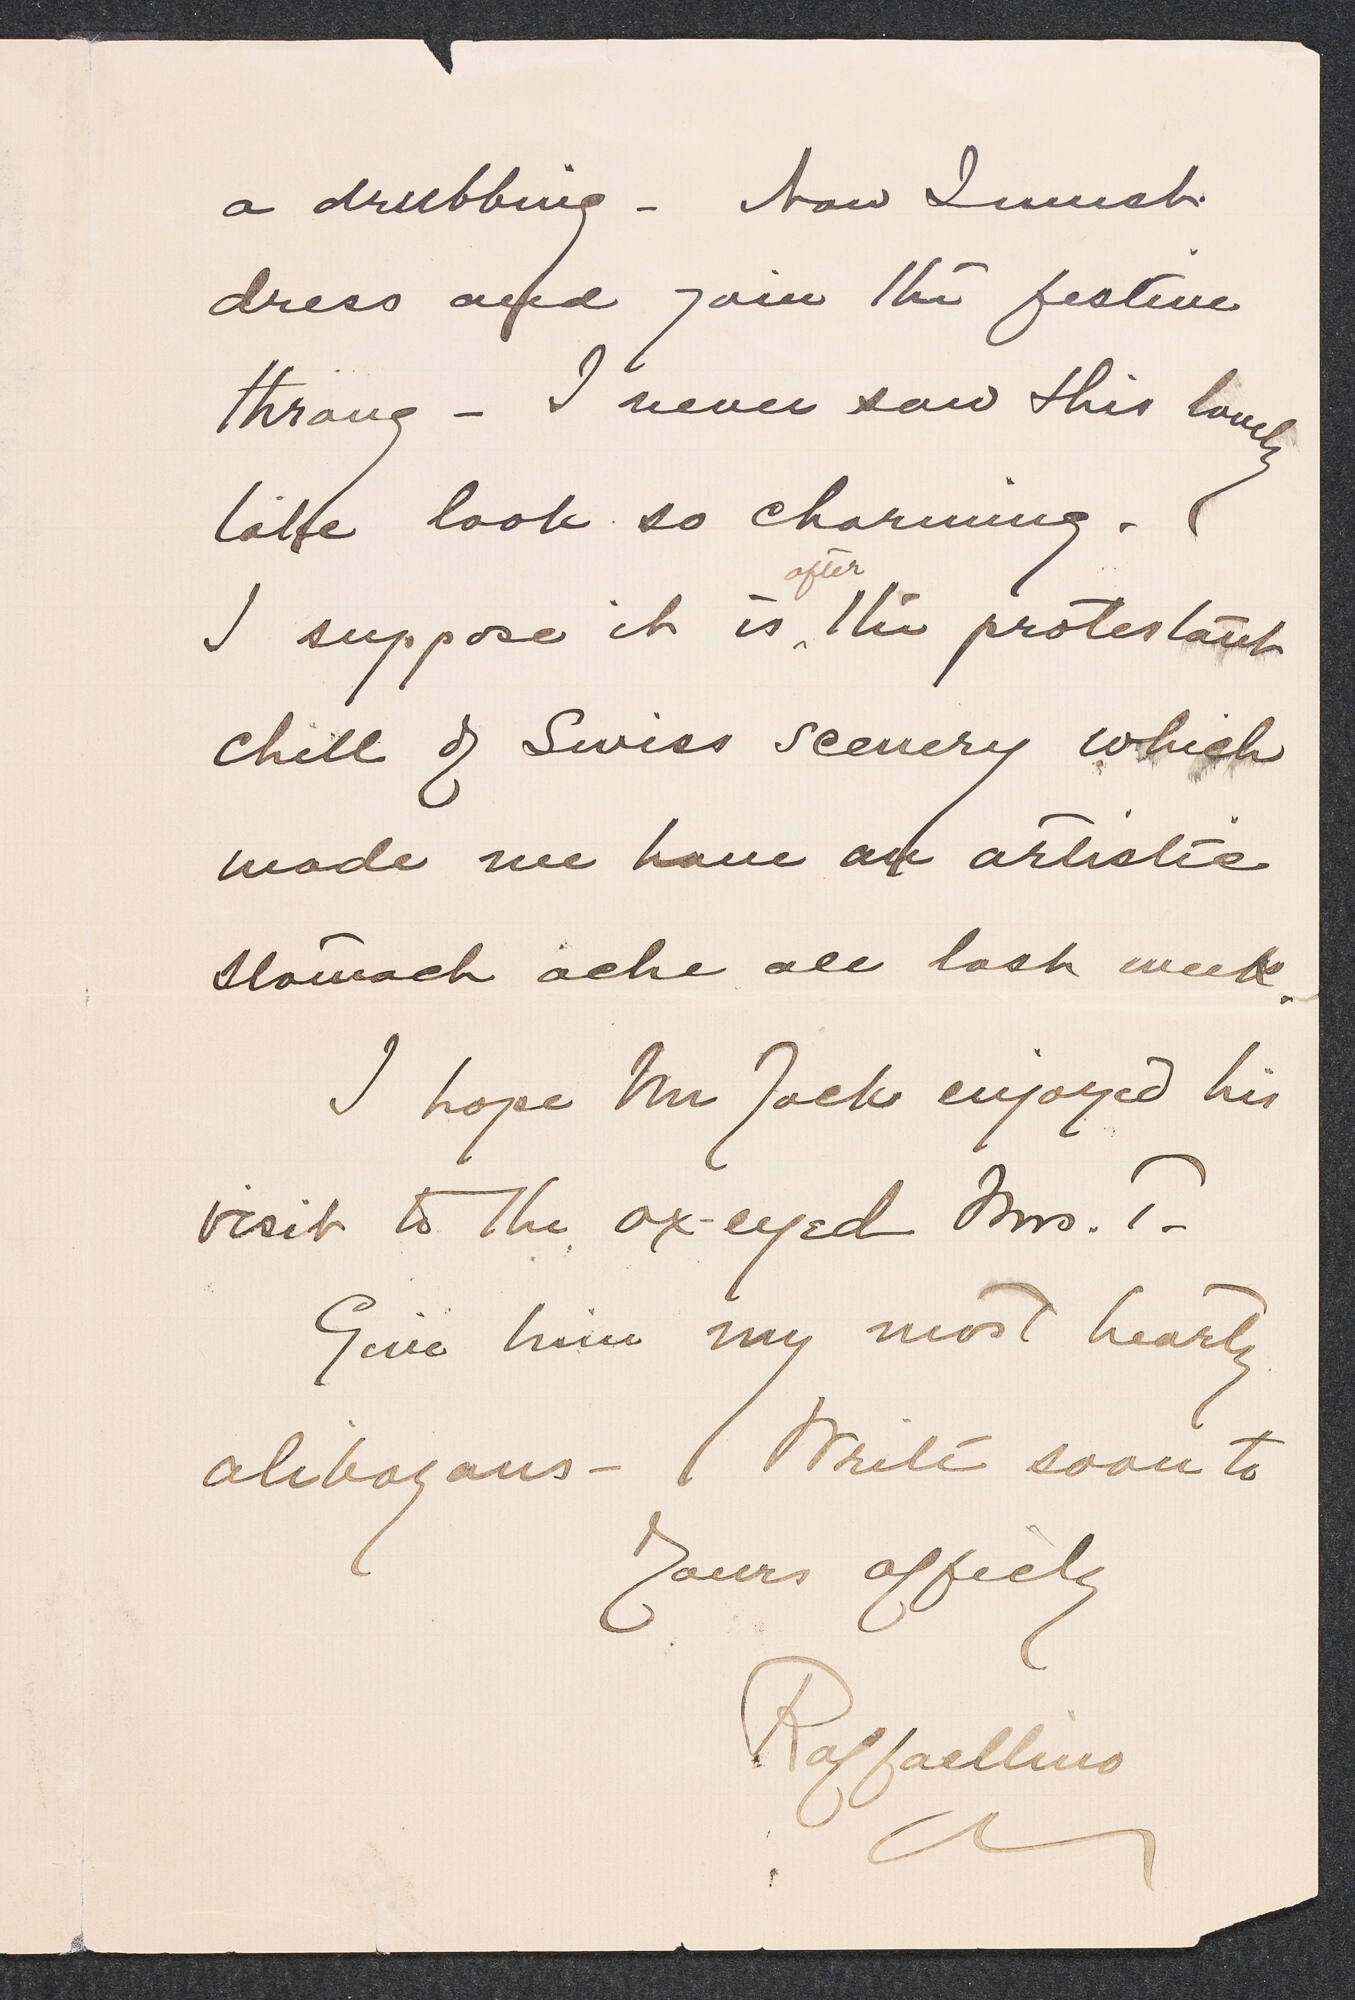 a drubbing – Now I must
dress and join the festive
throng – I never saw this lovely
lake look so charming.
I suppose it is ‸ after the protestant
chill of Swiss scenery which
made me have an artistic
stomach ache all last week.
I hope Mr Jack enjoyed his
visit to the ox-eyed Mrs. T–
Give him my most hearty
–
Write soon to
Yours affiely
Raffaellino